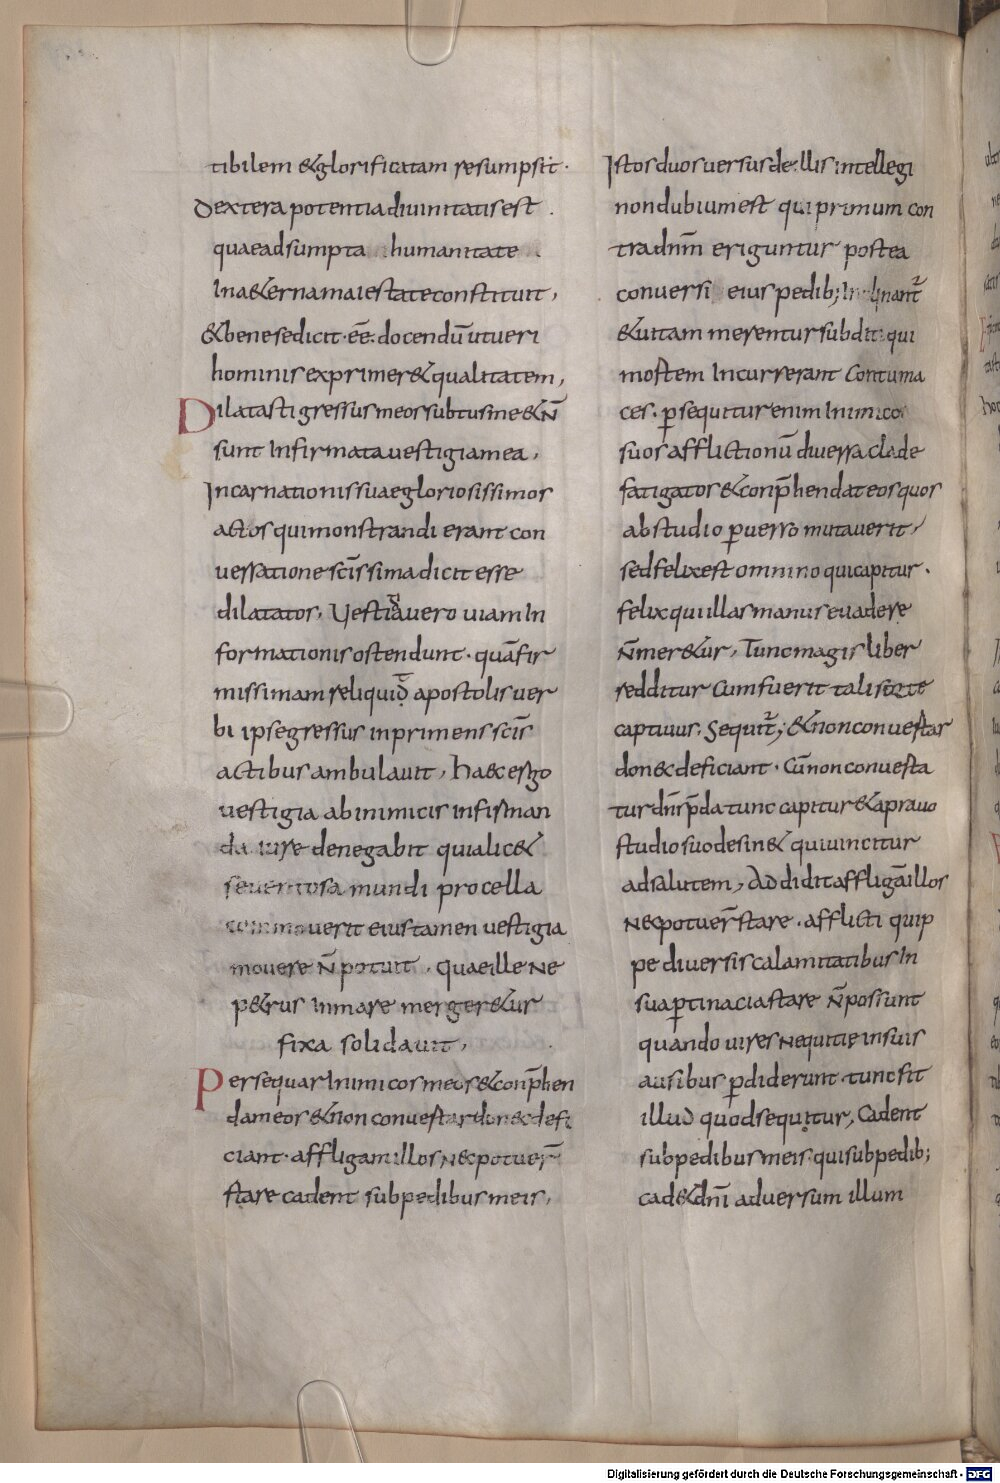 tibilem & glorificatam resumpsit.
Dextera potentia diuinitatis est.
quae adsumpta humanitate
In a&erna maiestate constituit,
& bene sedicit. eē. docendū ut ueri
hominis exprimer& qualitatem,
Dilatasti gressus meos subtus me & n̄
sunt Infirmata uestigia mea,
Incarnationis suae gloriosissimos
actos qui monstrandi erant con
uersatione sc̄issima dicit esse
dilatatos, Vestigia uero uiam In
formationis ostendunt. quā fir
missimam reliquid apostolis uer
bi ipse gressus inprimens sc̄is
actibus ambulauit, haec ergo
uestigia ab inimicis infirman
da iure denegabit quia lic&
seuentosa mundi procella
commouerit eius tamen uestigia
mouere n̄ potuit, quae ille ne
p&rus Inmare merger&ur
fixa solidauit,
Persequar Inimicos meos & conp̄hen
dam eos & non conuertar donec defi
ciant. affligam illos nec potuer̄
stare cadent sub pedibus meis,
Istos duos uersus de illis intellegi
non dubium est qui primum con
tra dn̄m eriguntur postea
conuersi eius pedib; Inclinant̄
& uitam merentur subditi qui
mortem Incurrerant Contuma
ces. ꝑsequitur enim Inimicos
suos afflictionū diuersa clade
fatigatos & conp̄hendat eos quos
ab studio ꝑuerso mutauerit,
sed felix est omnino qui capitur.
felix qui illas manus euadere
n̄ mer&ur, Tunc magis liber
redditur Cum fuerit tali sorte
captiuus. Sequit̄; & non conuertar
donec deficiant. Cū non conuerta
tur dn̄s p̄da tunc capitur & a prauo
studio suo desin& qui uincitur
ad salutem, Addidit affligā illos
nec potuer̄ stare. afflicti quip
pe diuersis calamitatibus In
sua ꝑtinacia stare n̄ possunt
quando uires nequitię in suis
ausibus ꝑdiderunt. tunc fit
illud quod sequitur, Cadent
sub pedibus meis. qui sub pedib;
cad& dn̄i aduersum illum
Digitalisierung gefördert durch die Deutsche Forschungsgemeinschaft - DFG